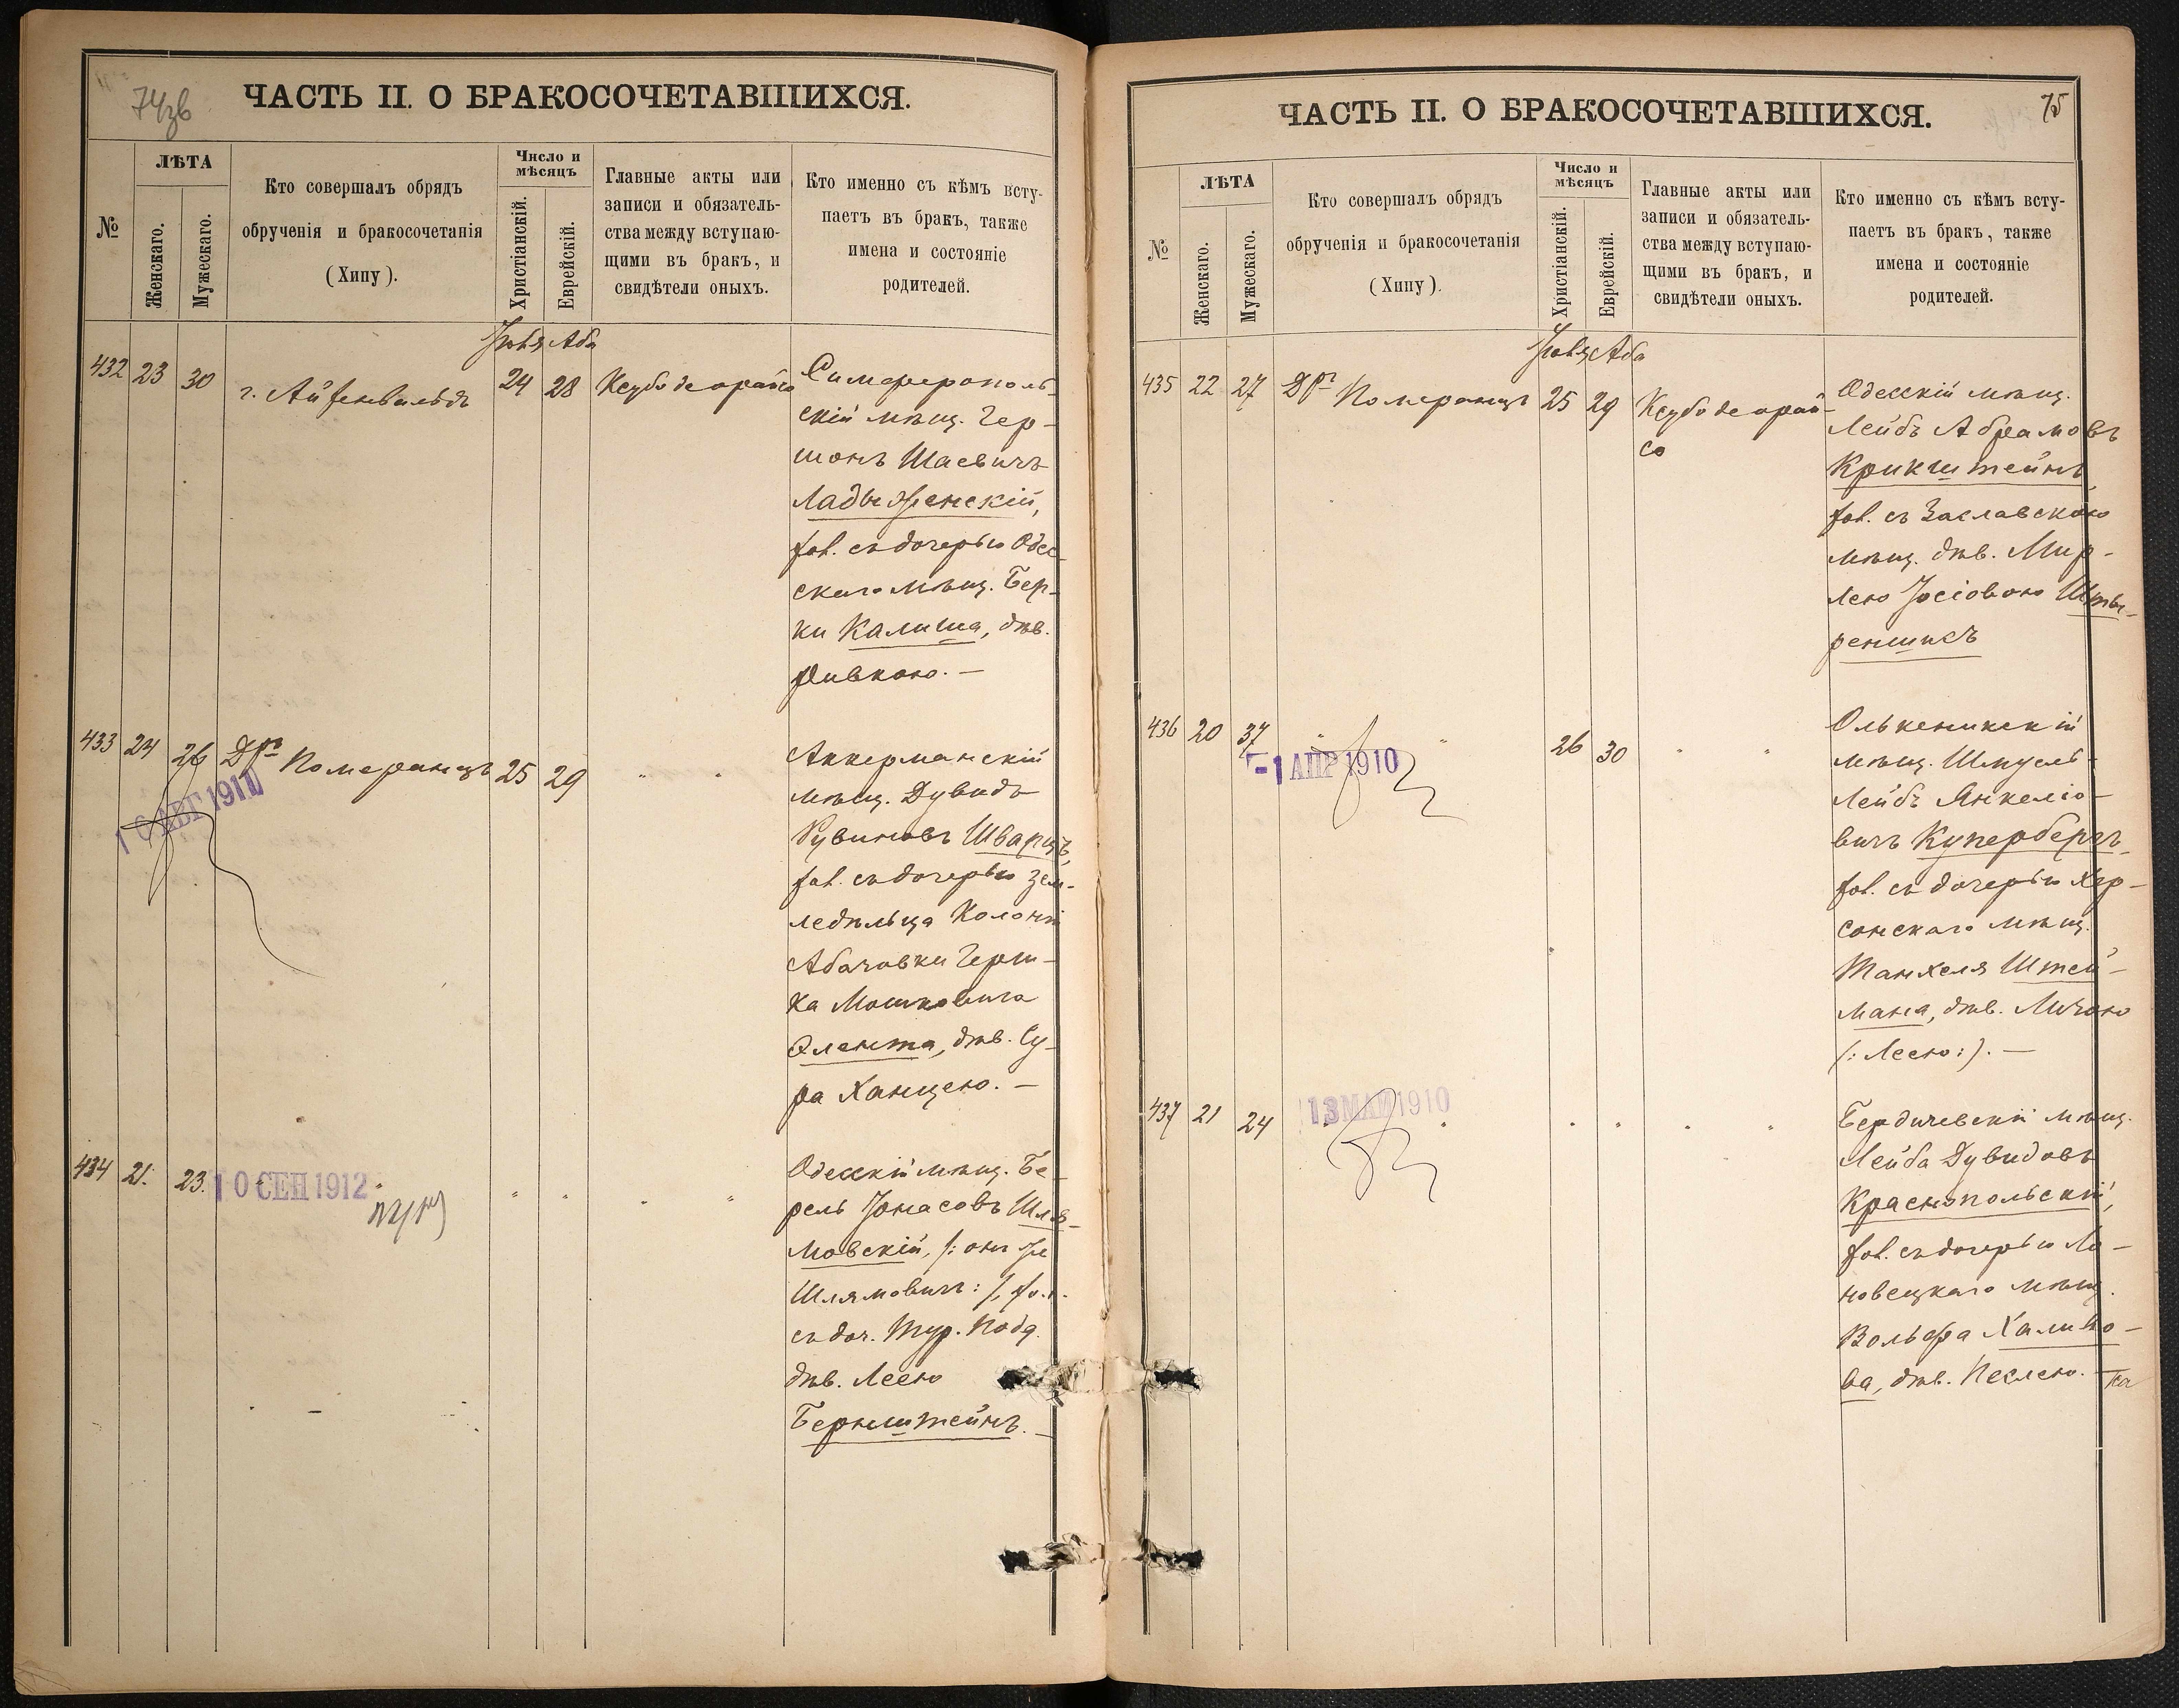 74зв
ЧАСТЬ II. О БРАКОСОЧЕТАВШИХСЯ.
№
ЛѢТА
Женскаго.
Мужескаго.
Кто совершалъ обрядъ
обрученія и бракосочетанія
(Хипу).
Число и
мѣсяцъ
Христіанскій.
Еврейскій.
Главные акты или
записи и обязатель-
ства между вступаю-
щими въ бракъ, и
свидѣтели оныхъ.
Кто именно съ кѣмъ всту-
паетъ въ бракъ, также
имена и состояніе
родителей.
Аба
432 23 30 г. Айзенвальдъ 24 28
Симферополь-
скій мѣщ. Гер-
шонъ Шаевичъ
Ладыженскій,
хол. съ дочерью Одес-
скаго мѣщ. Бер-
ки Калиша, дѣв.
Ривкою. —
433 24 26 Др. Померанцъ 25 29 " "
1 0 АВГ 1911
Аккерманскій
мѣщ. Дувидъ
Рувиновъ Шварцъ,
хол. съ дочерью зем-
ледѣльца Колоніи
Абачовки Герш-
ка Мошковича
Олента, дѣв. Су-
ра Ханцею. —
434 21. 23. " " " " " "
1 0 СЕН 1912
Одесскій мѣщ. Бе-
рель Іонасовъ Шля-
мовскій, /: онъ же
Шлямовичъ :/, хол.
съ доч. Тур. Подд.
дѣв. Леею
Бернштейнъ. —
75
ЧАСТЬ II. О БРАКОСОЧЕТАВШИХСЯ.
№
ЛѢТА
Женскаго.
Мужескаго.
Кто совершалъ обрядъ
обрученія и бракосочетанія
(Хипу).
Число и
мѣсяцъ
Христіанскій.
Еврейскій.
Главные акты или
записи и обязатель-
ства между вступаю-
щими въ бракъ, и
свидѣтели оныхъ.
Кто именно съ кѣмъ всту-
паетъ въ бракъ, также
имена и состояніе
родителей.
Аба
435 22 27 Др. Померанцъ 25 29
Одесскій мѣщ.
Лейбъ Абрамовъ
Крикштейнъ,
хол. съ Заславскою
мѣщ. дѣв. Мир-
лею Іосіовою Шты-
реншисъ
436 20 37 " " 26 30 " "
- 1 АПР 1910
Олькеникскій
мѣщ. Шмуель-
Лейбъ Янкеліо-
вичъ Купербергъ,
хол. съ дочерью Хер-
сонскаго мѣщ.
Танхеля Штей-
мана, дѣв. Личою
/: Леею :/. —
437 21 24 " " " " " "
13 МАЙ 1910
Бердичевскій мѣщ.
Лейба Дувидовъ
Краснопольскій,
хол. съ дочерью Ла-
новецкаго мѣщ.
Вольфа Халиво-
ва, дѣв. Песлею. —